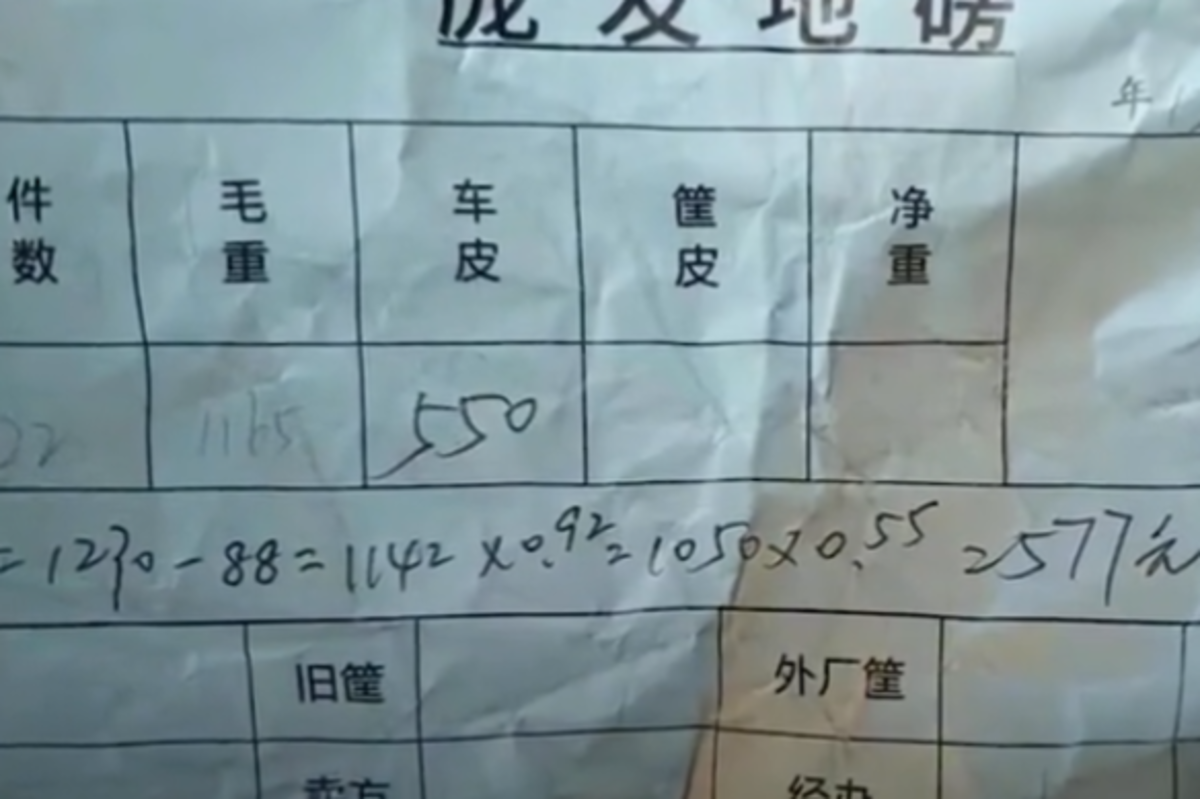 地磅
年
件数 毛重 车皮 筐皮 净重
22 1165 550
=1230-88=1142×0.92=1050×0.55=577元
旧筐 外厂筐
卖方 经办